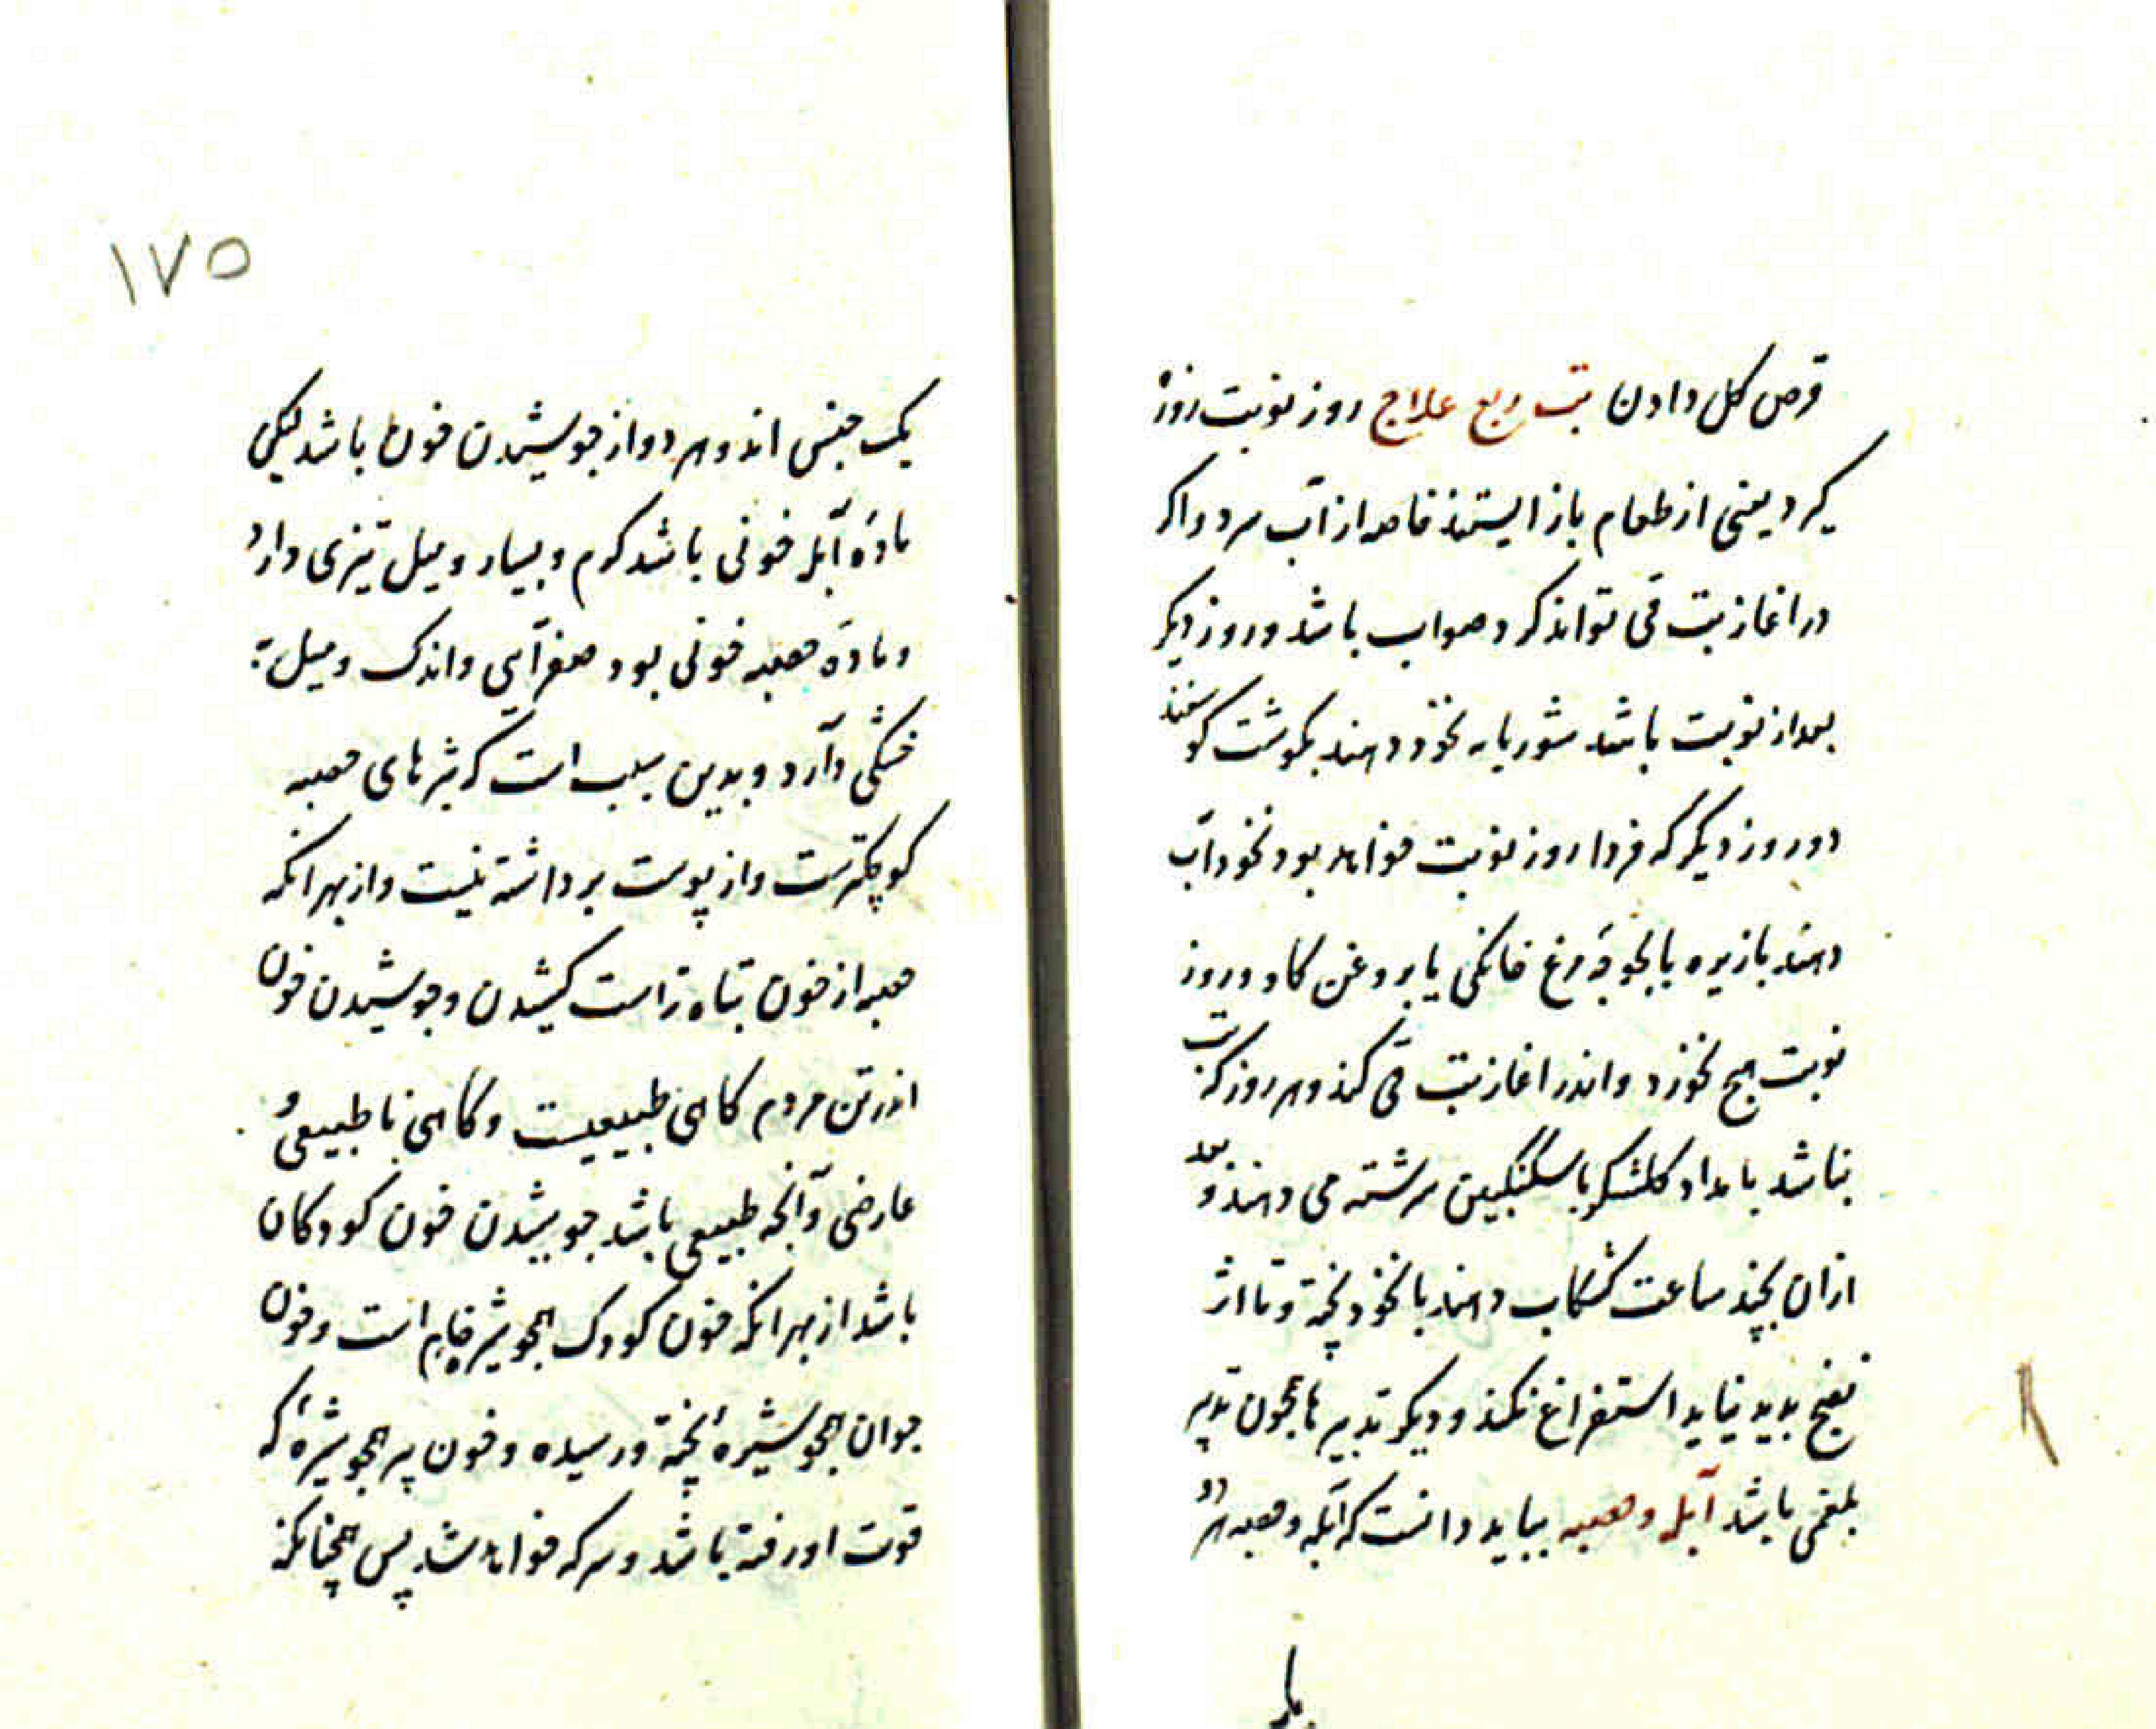 قرص کل دادن تب ربع علاج روز نوبت روزه
کیرد یعنی از طعام باز ایستند خاصه از آب سرد و اکر
در اغاز تب قی تواند کرد صواب باشد و روز دیکر
بعد از نوبت باشد شوربا به نخود دهند بکوشت کوسفند
دو روز دیکر که فردا روز نوبت خواهد بود نخوداب
دهند با زیره یا بجوجه مرغ خانکی یا بروغن کاو و روز
نوبت هیچ نخورد و اندر اغاز تب قی کند و هر روز که تب
نباشد بامداد کلشکر با سکنکبین سرشته می دهند و بعد
ازان بچند ساعت کشکاب دهند با نخود پخته و تا اثر
نضج بدید نیاید استفراغ نکند و دیکر تدبیرها همچون تدبیر
بلغمی باشد آبله و حصبه بباید دانست که آبله و حصبه هر دو
یک جنس اند و هر دو از جوشیدن خون باشد لیکن
مادّه آبله خونی باشد کرم و بسیار و میل بتری دارد
و مادّه حصبه خونی بود صفرآیی و اندک و میل به
خشکی دآرد و بدین سبب است که بثرهای حصبه
کوچکترست و از پوست برداشته نیست و از بهر انکه
حصبه از خون تباه تر است کیشدن و جوشیدن خون
اندر تن مردم کاهی طبیعیست و کاهی نا طبیعی و
عارضی و آنچه طبیعی باشد جوشیدن خون کودکان
باشد از بهر انکه خون کودک همچو شیره خام است و خون
جوان همچو شیرهٔ پخته و رسیده و خون پیر همچو شیرهٔ که
قوت او رفته باشد و سرکه خواهد شد پس همچنانکه
۱۷۵